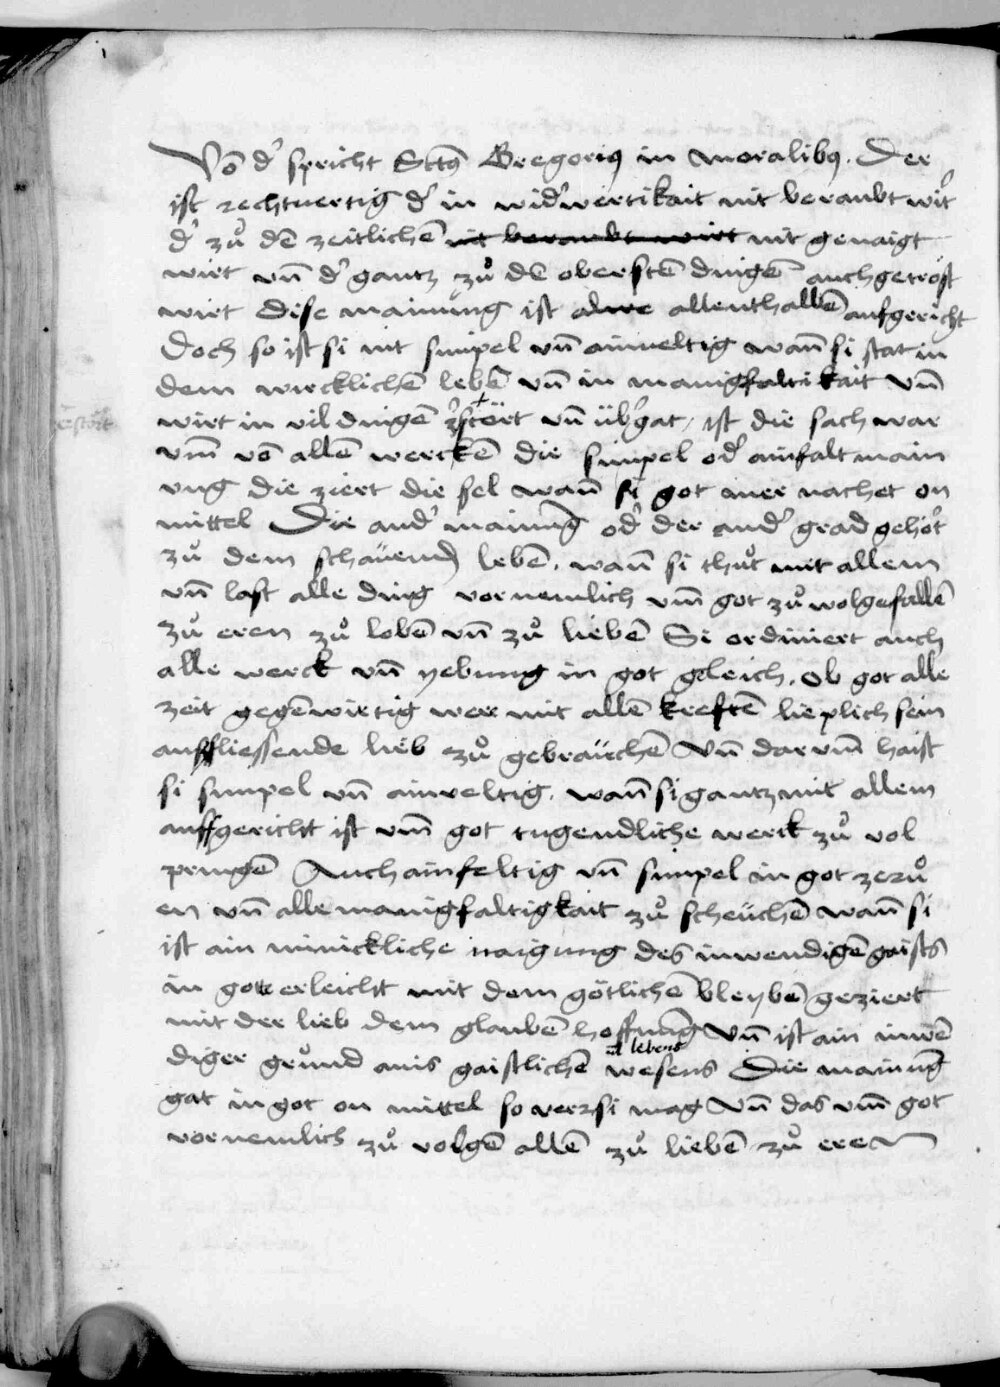 Vō d' spricht Sctꝰ Gregoriꝰ in moralibꝰ. Der
ist rechtuertig d' in wid'wertikait nit beraubt wirt
d' zů dē zeitlichē nit beraubt wirt nit genaigt
wirt vn̄ d' gantz zů dē oberstē dingē auch getröst
wirt dise mainung ist alwe allenthallē aufgericht
Doch so ist si nit simpel vn̄ ainueltig wan̄ si stat in
dem wircklichē lebē vn̄ in manigfaltikait vn̄
wirt in vil dingē z'stört vn̄ üb'gat, ist die sach war
vm̄ vō allē werckē die simpel od' ainfalt main
ung die ziert die sel wan̄ si got aner nachet on
mittel Die and' mainūg od' der and' grad gehört
zů dem schauend lebē. wan̄ si thůt mit allem
vn̄ last alle ding vornemlich vm̄ got zů wolgefallē
Zů eren zů lobē vn̄ zů liebē Si ordiniert auch
alle werck vn̄ yebung in got gleich. Ob got alle
zeit gegēwirtig wer mit allē kreftē lieplich sein
ausfliessende lieb zů gebrauchē Vn̄ darvm̄ haist
si simpel vn̄ ainueltig. wan̄ si gantz mit allem
auffgericht ist vm̄ got tugendliche werck zů vol
pringē Auch ainfeltig vn̄ simpel in got zerů
en vn̄ alle manigfaltigkait zů scheüchē wan̄ si
ist ain minickliche naigung des inwendigē gaists
in got erleicht mit dem götlichē bleybē geziert
mit der lieb dem glaubē hoffnūg Vn̄ ist ain inwē
vn̄ lebens
diger grund ains gaistlichē wesens Die mainūg
gat in got on mittel so verr si mag Vn̄ das vm̄ got
vornemlich zů volgē allē zů liebē zů eren
zestört